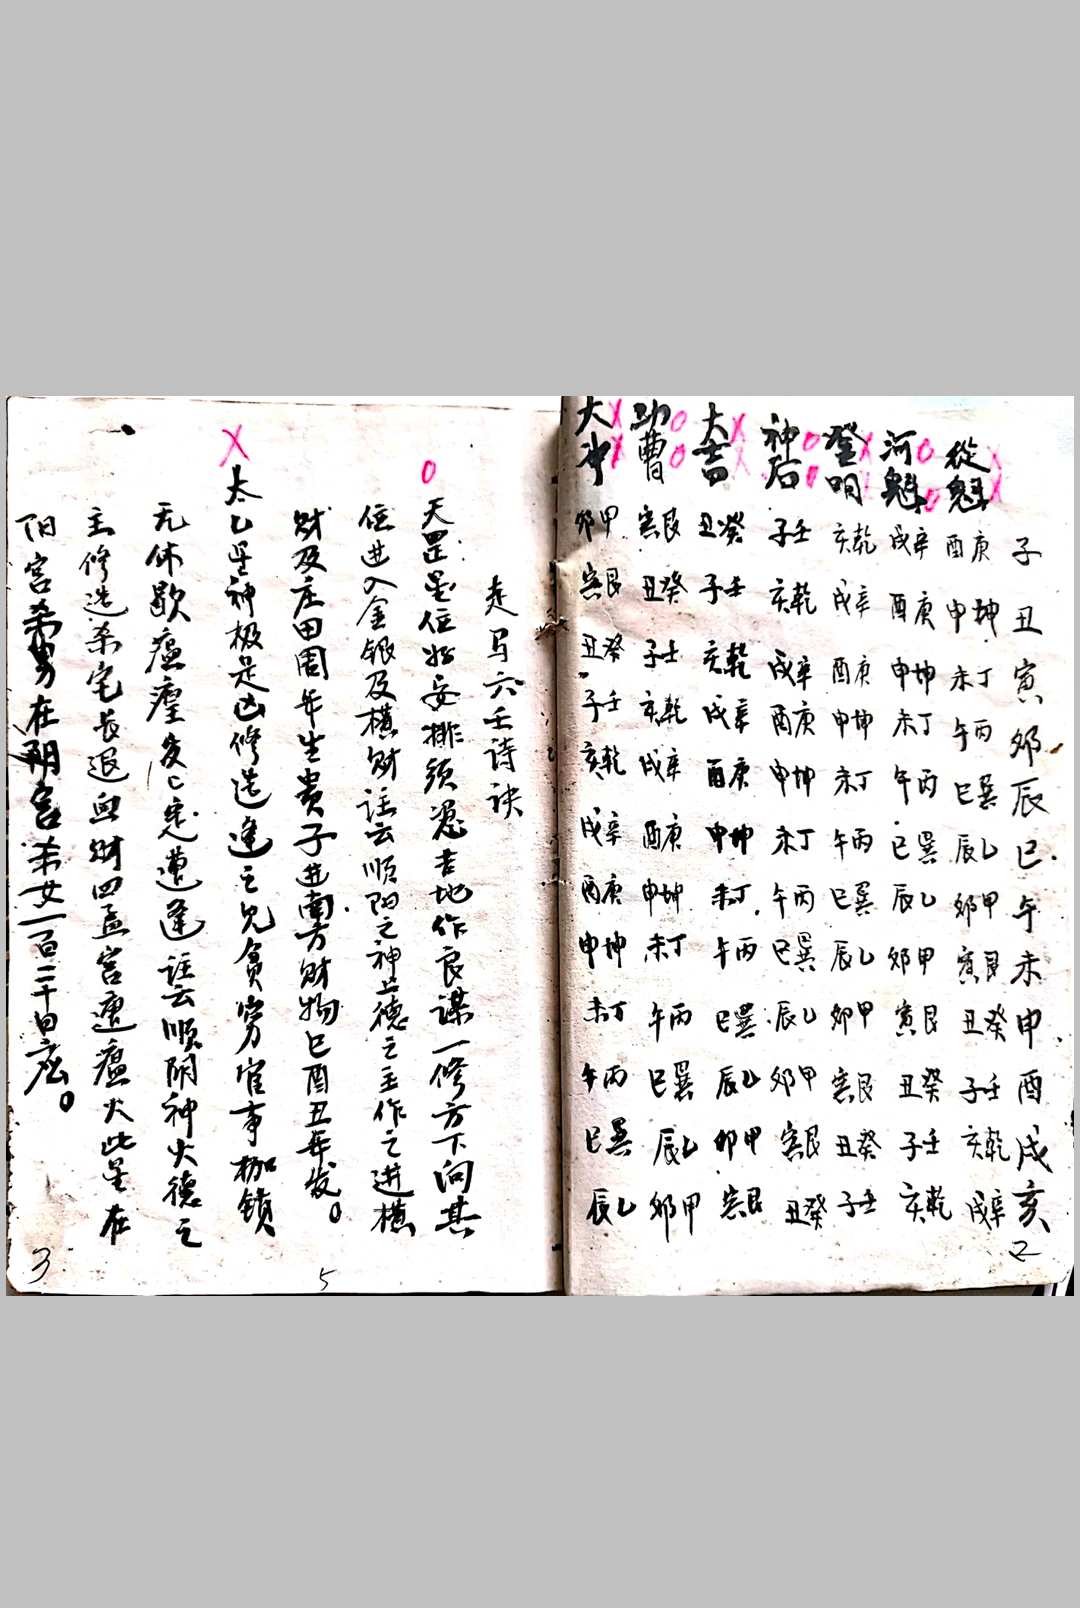 子丑寅卯辰巳午未申酉戌亥
從魁 酉庚 申坤 未丁 午丙 巳巽 辰乙 卯甲 寅艮 丑癸 子壬 亥乾 戌辛
河魁 戌辛 酉庚 申坤 未丁 午丙 巳巽 辰乙 卯甲 寅艮 丑癸 子壬 亥乾
登明 亥乾 戌辛 酉庚 申坤 未丁 午丙 巳巽 辰乙 卯甲 寅艮 丑癸 子壬
神后 子壬 亥乾 戌辛 酉庚 申坤 未丁 午丙 巳巽 辰乙 卯甲 寅艮 丑癸
大吉 丑癸 子壬 亥乾 戌辛 酉庚 申坤 未丁 午丙 巳巽 辰乙 卯甲 寅艮
功曹 寅艮 丑癸 子壬 亥乾 戌辛 酉庚 申坤 未丁 午丙 巳巽 辰乙 卯甲
大冲 卯甲 寅艮 丑癸 子壬 亥乾 戌辛 酉庚 申坤 未丁 午丙 巳巽 辰乙
2
走马六壬诗诀
天罡星位好安排须觅吉地作良谋一修方下向其
位进入金银及横财註云顺阳之神土德之主作之进横
财及庄田周年生贵子进南方财物巳酉丑年发。
太乙星神极是凶修造逢之见貧穷官事枷锁
无休歇瘟瘽定遭逢註云顺阴神火德之
主修造杀宅长退血财四孟宫遭瘟火此星在
阳宫杀男在阴宫杀女一百二十日应。
5
3